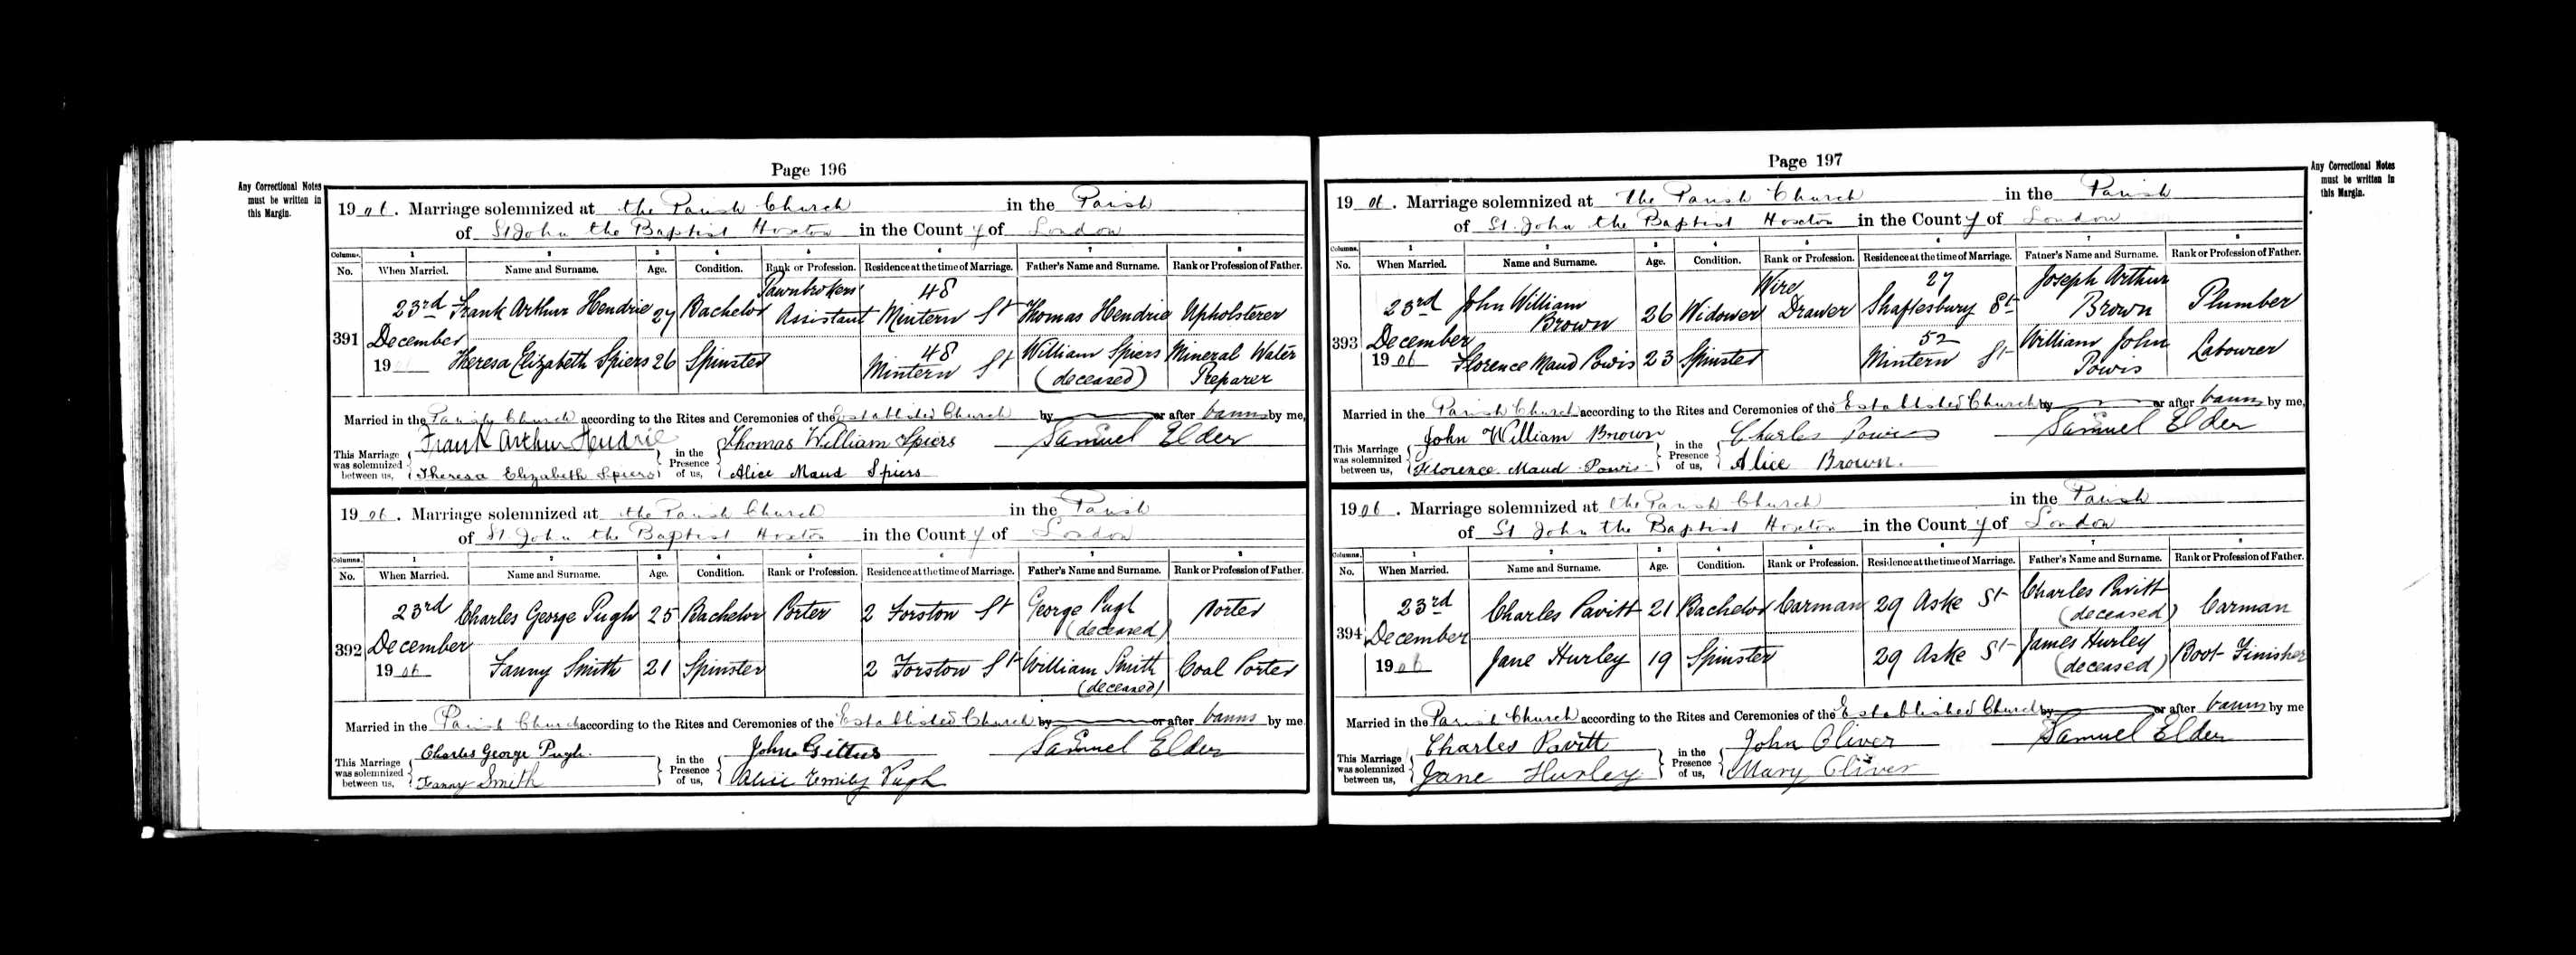 Page 196
Any Correctional Notes
must be written in
this Margin.
1906. Marriage solemnized at the Parish Church in the Parish
of St John the Baptist Hoxton in the County of London
Columns. 1 2 3 4 5 6 7 8
No. When Married. Name and Surname. Age. Condition. Rank or Profession. Residence at the time of Marriage. Father's Name and Surname. Rank or Profession of Father.
391 23rd December 1906
Frank Arthur Hendrie 27 Bachelor Pawnbrokers' Assistant 48 Mintern St Thomas Hendrie Upholsterer
Theresa Elizabeth Spiers 26 Spinster 48 Mintern St William Spiers (deceased) Mineral Water Preparer
Married in the Parish Church according to the Rites and Ceremonies of the Established Church by or after banns by me,
This Marriage was solemnized between us, Frank Arthur Hendrie Theresa Elizabeth Spiers
in the Presence of us, Thomas William Spiers Alice Maud Spiers
Samuel Elder
1906. Marriage solemnized at the Parish Church in the Parish
of St John the Baptist Hoxton in the County of London
Columns. 1 2 3 4 5 6 7 8
No. When Married. Name and Surname. Age. Condition. Rank or Profession. Residence at the time of Marriage. Father's Name and Surname. Rank or Profession of Father.
392 23rd December 1906
Charles George Pugh 25 Bachelor Porter 2 Forston St George Pugh (deceased) Porter
Fanny Smith 21 Spinster 2 Forston St William Smith (deceased) Coal Porter
Married in the Parish Church according to the Rites and Ceremonies of the Established Church by or after banns by me
This Marriage was solemnized between us, Charles George Pugh. Fanny Smith
in the Presence of us, John Gittus Alice Emily Pugh
Samuel Elder
Page 197
Any Correctional Notes
must be written in
this Margin.
1906. Marriage solemnized at the Parish Church in the Parish
of St. John the Baptist Hoxton in the County of London
Columns. 1 2 3 4 5 6 7 8
No. When Married. Name and Surname. Age. Condition. Rank or Profession. Residence at the time of Marriage. Father's Name and Surname. Rank or Profession of Father.
393 23rd December 1906
John William Brown 26 Widower Wire Drawer 27 Shaftesbury St Joseph Arthur Brown Plumber
Florence Maud Powis 23 Spinster 52 Mintern St William John Powis Labourer
Married in the Parish Church according to the Rites and Ceremonies of the Established Church by or after banns by me,
This Marriage was solemnized between us, John William Brown Florence Maud Powis
in the Presence of us, Charles Powis Alice Brown.
Samuel Elder
1906. Marriage solemnized at the Parish Church in the Parish
of St John the Baptist Hoxton in the County of London
Columns. 1 2 3 4 5 6 7 8
No. When Married. Name and Surname. Age. Condition. Rank or Profession. Residence at the time of Marriage. Father's Name and Surname. Rank or Profession of Father.
394 23rd December 1906
Charles Pavitt 21 Bachelor Carman 29 Aske St Charles Pavitt (deceased) Carman
Jane Hurley 19 Spinster 29 Aske St James Hurley (deceased) Boot Finisher
Married in the Parish Church according to the Rites and Ceremonies of the Established Church by or after banns by me
This Marriage was solemnized between us, Charles Pavitt Jane Hurley
in the Presence of us, John Oliver Mary Oliver
Samuel Elder